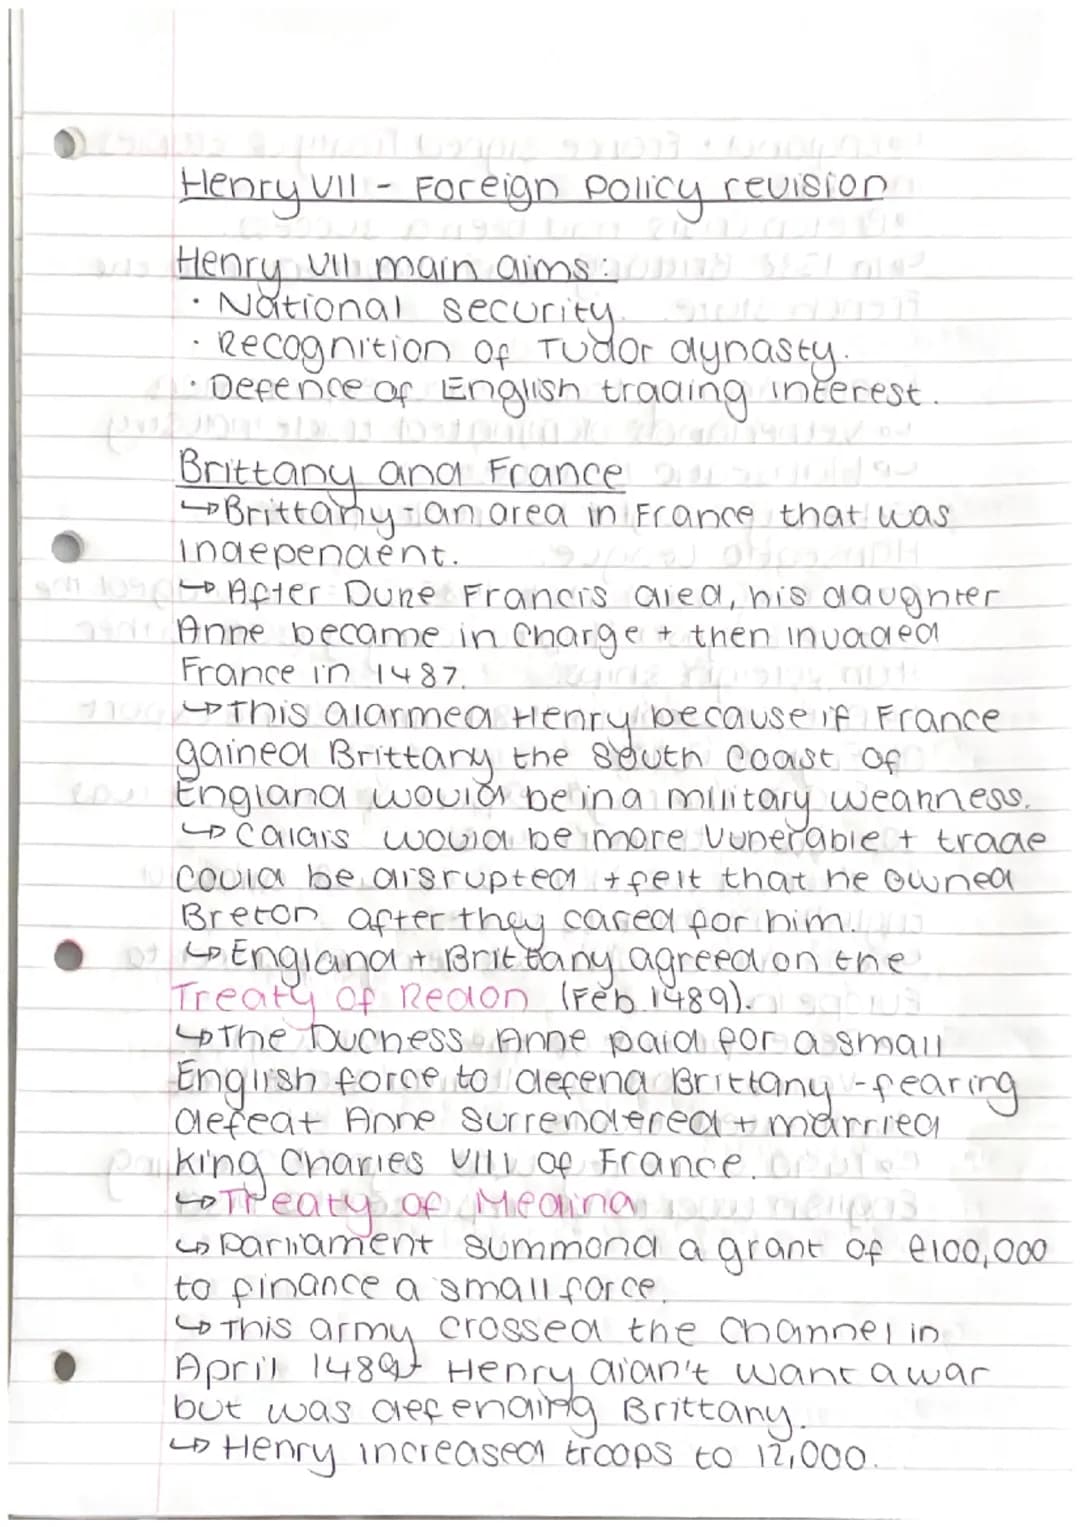 Henry VII - Foreign Policy revision
Henry VII main aims:
· National security.
· Recognition of Tudor dynasty.
· Defence of English trading interest.
Brittany and France
↳ Brittany - an area in France that was
independent.
↳ After Duke Francis died, his daughter
Anne became in charge + then invaded
France in 1487.
↳ This alarmed Henry because if France
gained Brittany the South Coast of
England would be in a military weakness.
↳ Calais would be more vunerable + trade
could be disrupted + felt that he owned
Breton after they cared for him.
↳ England + Brittany agreed on the
Treaty of Redon (Feb 1489).
↳ The Duchess Anne paid for a small
English force to defend Brittany - fearing
defeat Anne surrendered + married
King Charles VIII of France.
↳ Treaty of Medina
↳ Parliament summond a grant of £100,000
to finance a small force.
↳ This army crossed the Channel in
April 1489 + Henry didn't want a war
but was defending Brittany.
↳ Henry increased troops to 12,000.